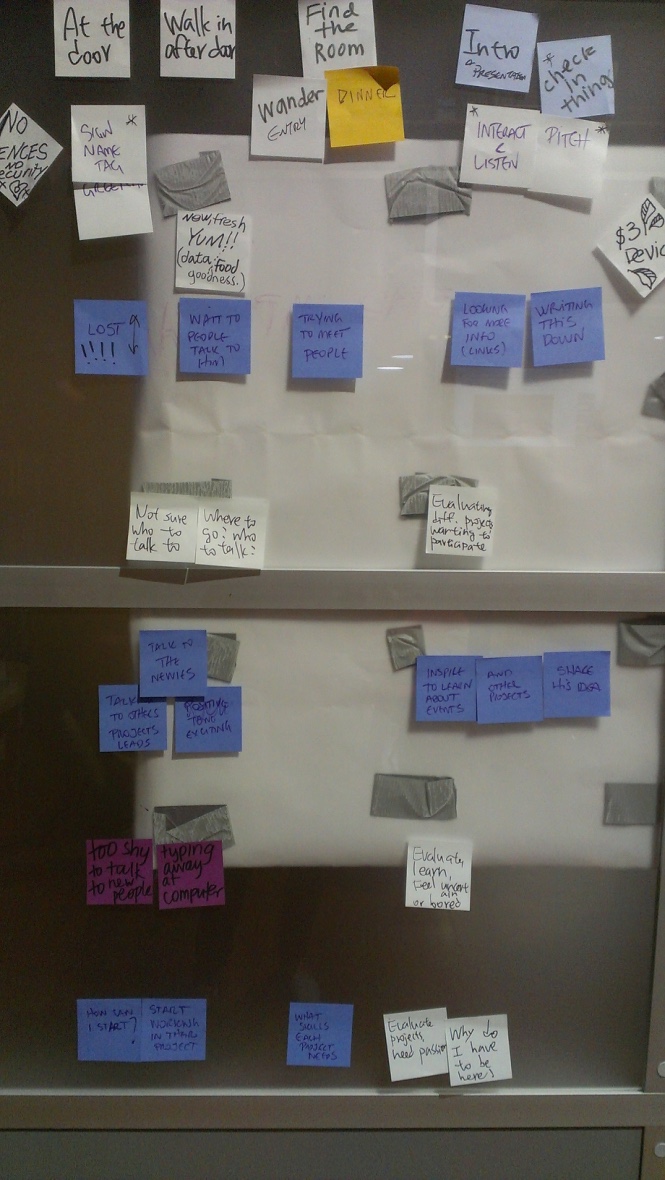 At the
door
Walk in
after door
Find
the
Room
Intro
& PRESENTATION
* check
in
thing
Wander
ENTRY
DINNER
NO
ENCES
NO
SECURITY
SIGN *
NAME
TAG
* INTERACT
&
LISTEN
PITCH *
New, fresh
YUM!!
(data, food
goodness.)
$3
Devic
LOST
!!!!
WAIT TO
PEOPLE
TALK TO
HIM
TRYING
TO MEET
PEOPLE
LOOKING
FOR MORE
INFO
(LINKS)
WRITING
THIS
DOWN
Not sure
who to
talk to
Where to
go? who
to talk?
Evaluating
diff. projects
wanting to
participate
TALK TO
THE
NEWIES
TALK
TO OTHERS
PROJECTS
LEADS
POSITIVE
TONE
EXCITING
INSPIRE
TO LEARN
ABOUT
EVENTS
AND
OTHER
PROJECTS
SHARE
HIS IDEA
too shy
to talk
to new
people
typing
away
at
computer
Evaluate,
learn,
Feel uncert
ain
or bored
HOW CAN
I START?
START
WORKING
IN THEIR
PROJECT
WHAT
SKILLS
EACH
PROJECT
NEEDS
Evaluate
projects,
need passion
Why do
I have
to be
here?